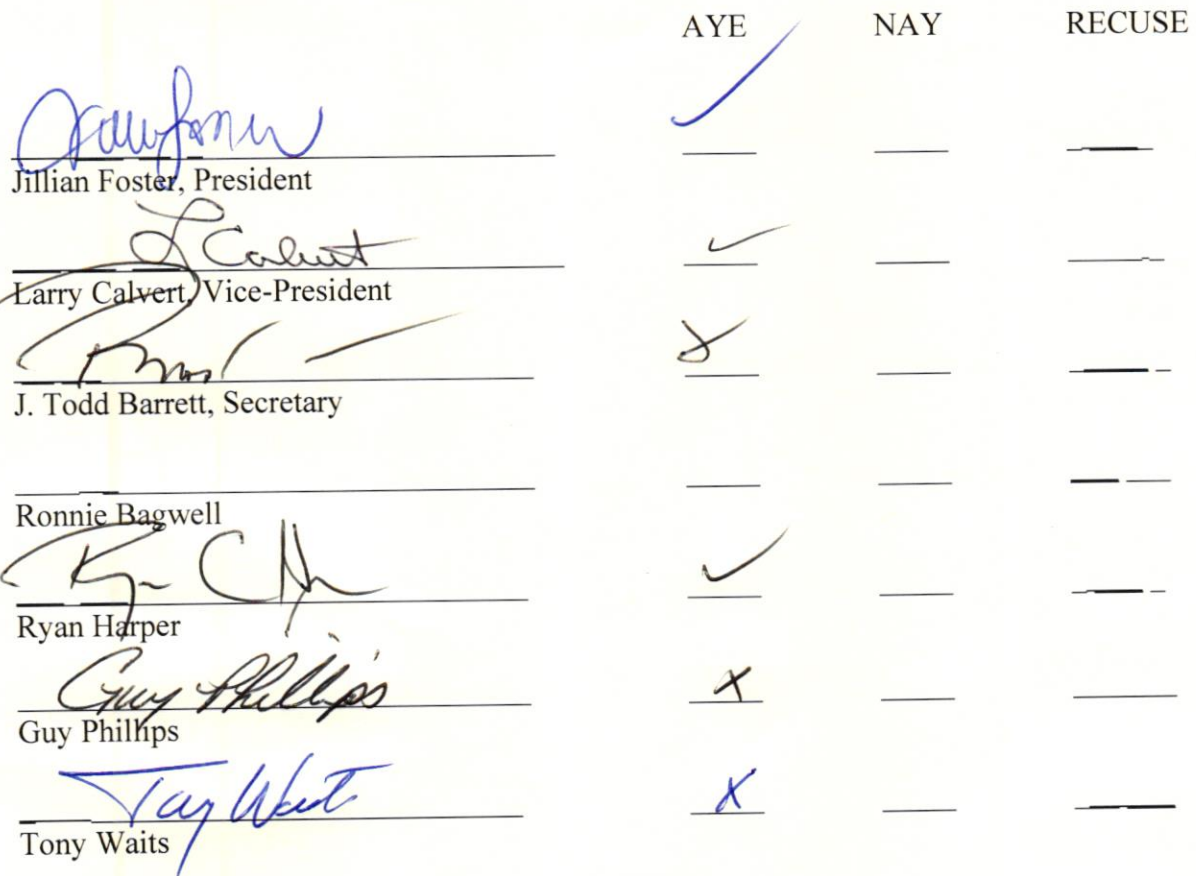 AYE NAY RECUSE
Jillian Foster, President
L Calvert
Larry Calvert, Vice-President
J. Todd Barrett, Secretary
Ronnie Bagwell
Ryan Harper
Guy Phillips
Guy Phillips
Tony Waits